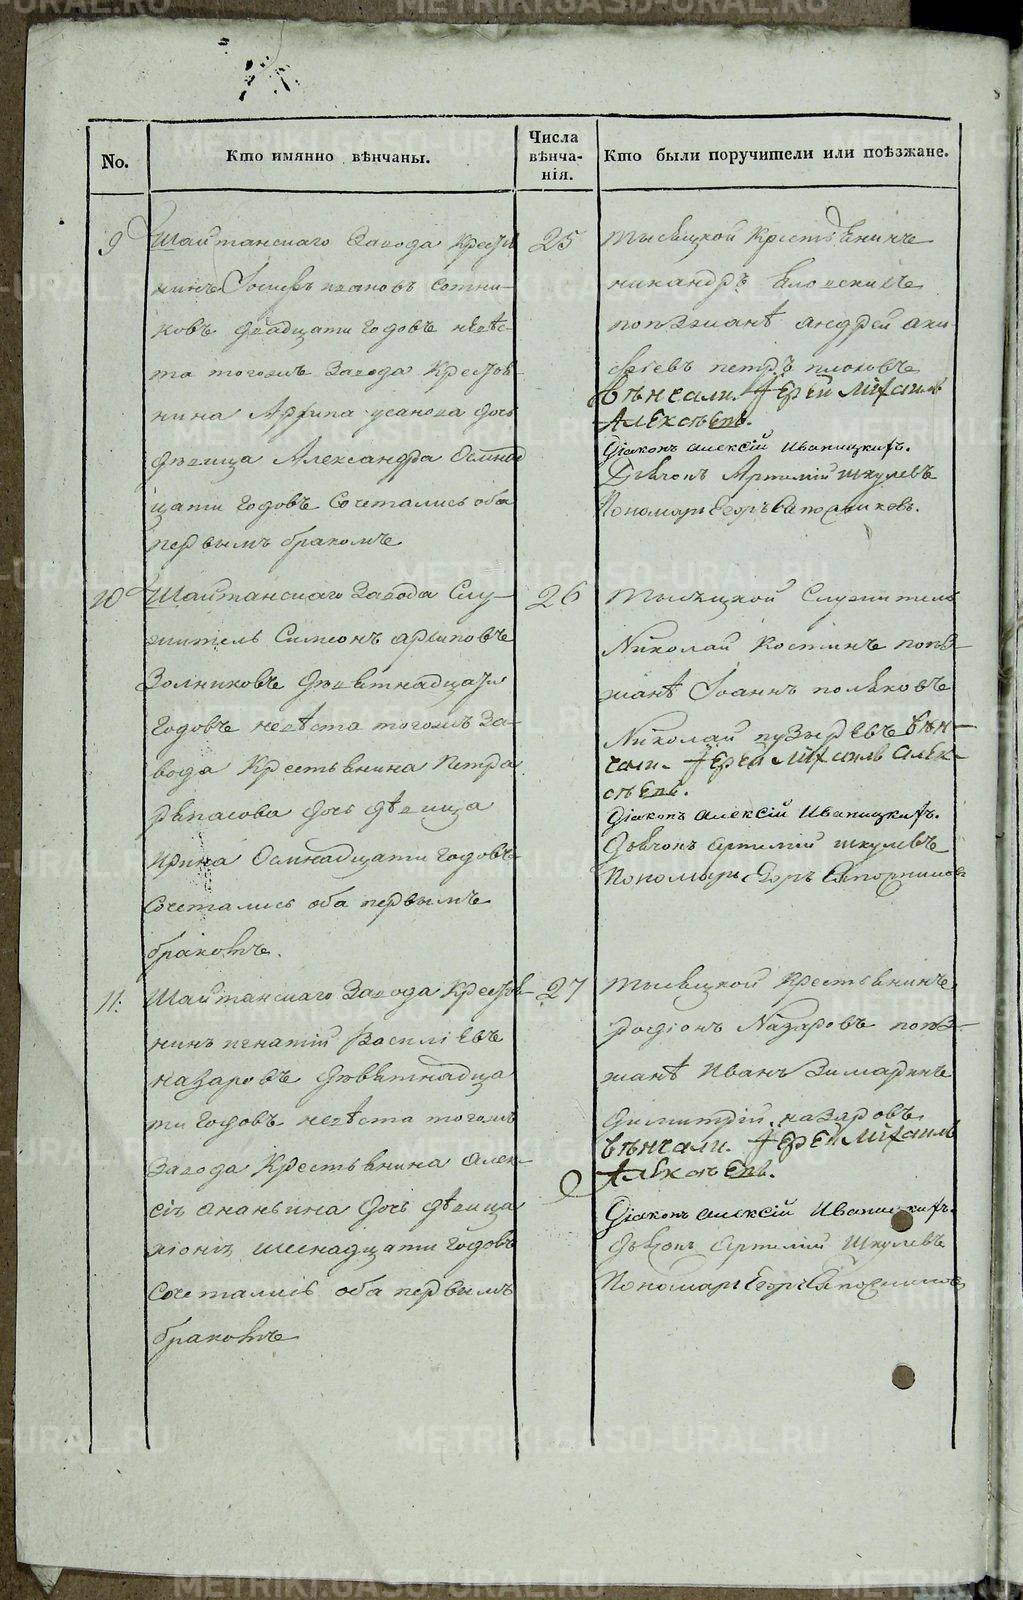 No.
Кто имянно вѣнчаны.
Числа вѣнча-
нія.
Кто были поручители или поѣзжане.
9
Шайтанскаго Завода Крестья
нинъ Іосифъ ивановъ сотни-
ковъ двадцати годовъ невѣс-
та тогожъ Завода Крестья
нина Архипа усанова дочь
дѣвица Александра Осмнад
цати годовъ Сочетались оба
первымъ бракомъ
25
Тысяцкой Крестьянинъ
никандръ
поѣзжанѣ андрей ани-
сѣевъ петръ
вѣнчали. Іерей Міхаилъ
Алексѣевъ.
Діаконъ алексій Иваницкихъ.
Дьячокъ Артемій шкулевъ
Пономарь Егоръ Сапожниковъ.
10
Шайтанскаго Завода Слу-
житель Симеонъ архиповъ
Золниковъ Девѣтнадцати
годовъ невѣста тогожъ За-
вода Крестьянина Петра
рѣпасова дочь дѣвица
ирина Осмнадцати годовъ
Сочетались оба первымъ
бракомъ.
26
Тысяцкой Служитель
Николай Костинъ поѣз-
жанѣ Іоаннъ поляковъ
Николай пузыревъ вѣн-
чали. Іерей Міхаилъ Алек-
сѣевъ.
Діаконъ алексій Иваницкихъ.
дьячокъ артемій шкулевъ
Пономарь Егоръ Сапожниковъ
11.
Шайтанскаго Завода Крестья-
нинъ игнатій Василіевъ
назаровъ девѣтнадца
ти годовъ невѣста тогожъ
Завода Крестьянина алек-
сія ананьина дочь дѣвица
хіонія шеснадцати годовъ
Сочетались оба первымъ
бракомъ
27
Тысяцкой Крестьянинъ
родіонъ Назаровъ поѣз-
жанѣ Иванъ Зимаринъ
димитрій назаровъ
вѣнчали. Іерей Міхаилъ
Алексѣевъ.
Діаконъ алексій Иваницкихъ.
дьячокъ артемій Шкулевъ
Пономарь Егоръ Сапожниковъ
METRIKI.GASO-URAL.RU